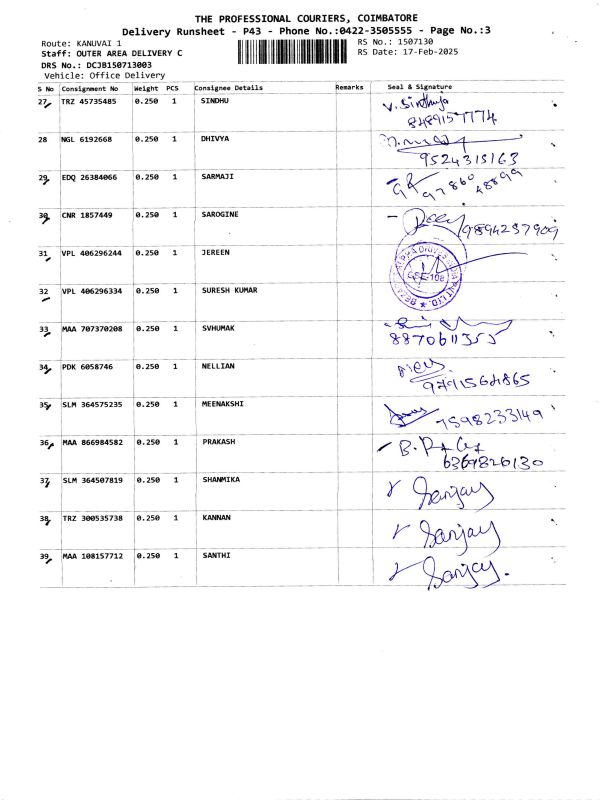 THE PROFESSIONAL COURIERS, COIMBATORE
Delivery Runsheet - P43 - Phone No.:0422-3505555 - Page No.:3
Route: KANUVAI 1
RS No.: 1507130
Staff: OUTER AREA DELIVERY C
RS Date: 17-Feb-2025
DRS No.: DCJB150713003
Vehicle: Office Delivery
S No Consignment No Weight PCS Consignee Details Remarks Seal & Signature
27 TRZ 45735485 0.250 1 SINDHU V. Sindhuja
8489157774
28 NGL 6192668 0.250 1 DHIVYA
9524315163
29 EDQ 26384066 0.250 1 SARMAJI 97860 48899
30 CNR 1857449 0.250 1 SAROGINE
9894237909
31 VPL 406296244 0.250 1 JEREEN
32 VPL 406296334 0.250 1 SURESH KUMAR
33 MAA 707370208 0.250 1 SVHUMAK
8870611355
34 PDK 6058746 0.250 1 NELLIAN
9791564865
35 SLM 364575235 0.250 1 MEENAKSHI
7598233149
36 MAA 866984582 0.250 1 PRAKASH
6369826130
37 SLM 364507819 0.250 1 SHANMIKA Sanjay
38 TRZ 300535738 0.250 1 KANNAN Sanjay
39 MAA 108157712 0.250 1 SANTHI Sanjay.